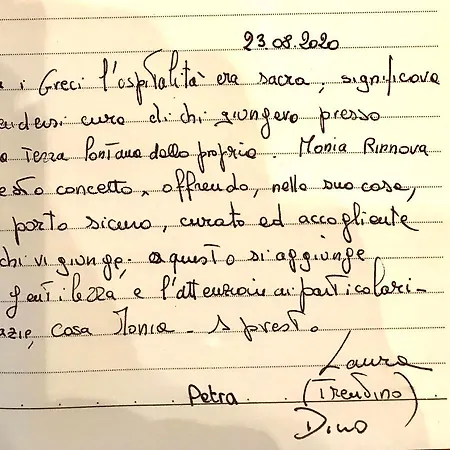 23.08.2020
i Greci l'ospitalità era sacra, significava
cura di chi giungeva presso
terra lontana dalla propria. Monia Rinnova
concetto, offrendo, nella sua casa,
porto sicuro, curato ed accogliente
chi vi giunge. a questo si aggiunge
gentilezza, e l'attenzione ai particolari-
casa Monia - A presto.
Laura
Petra (Trentino)
Dino